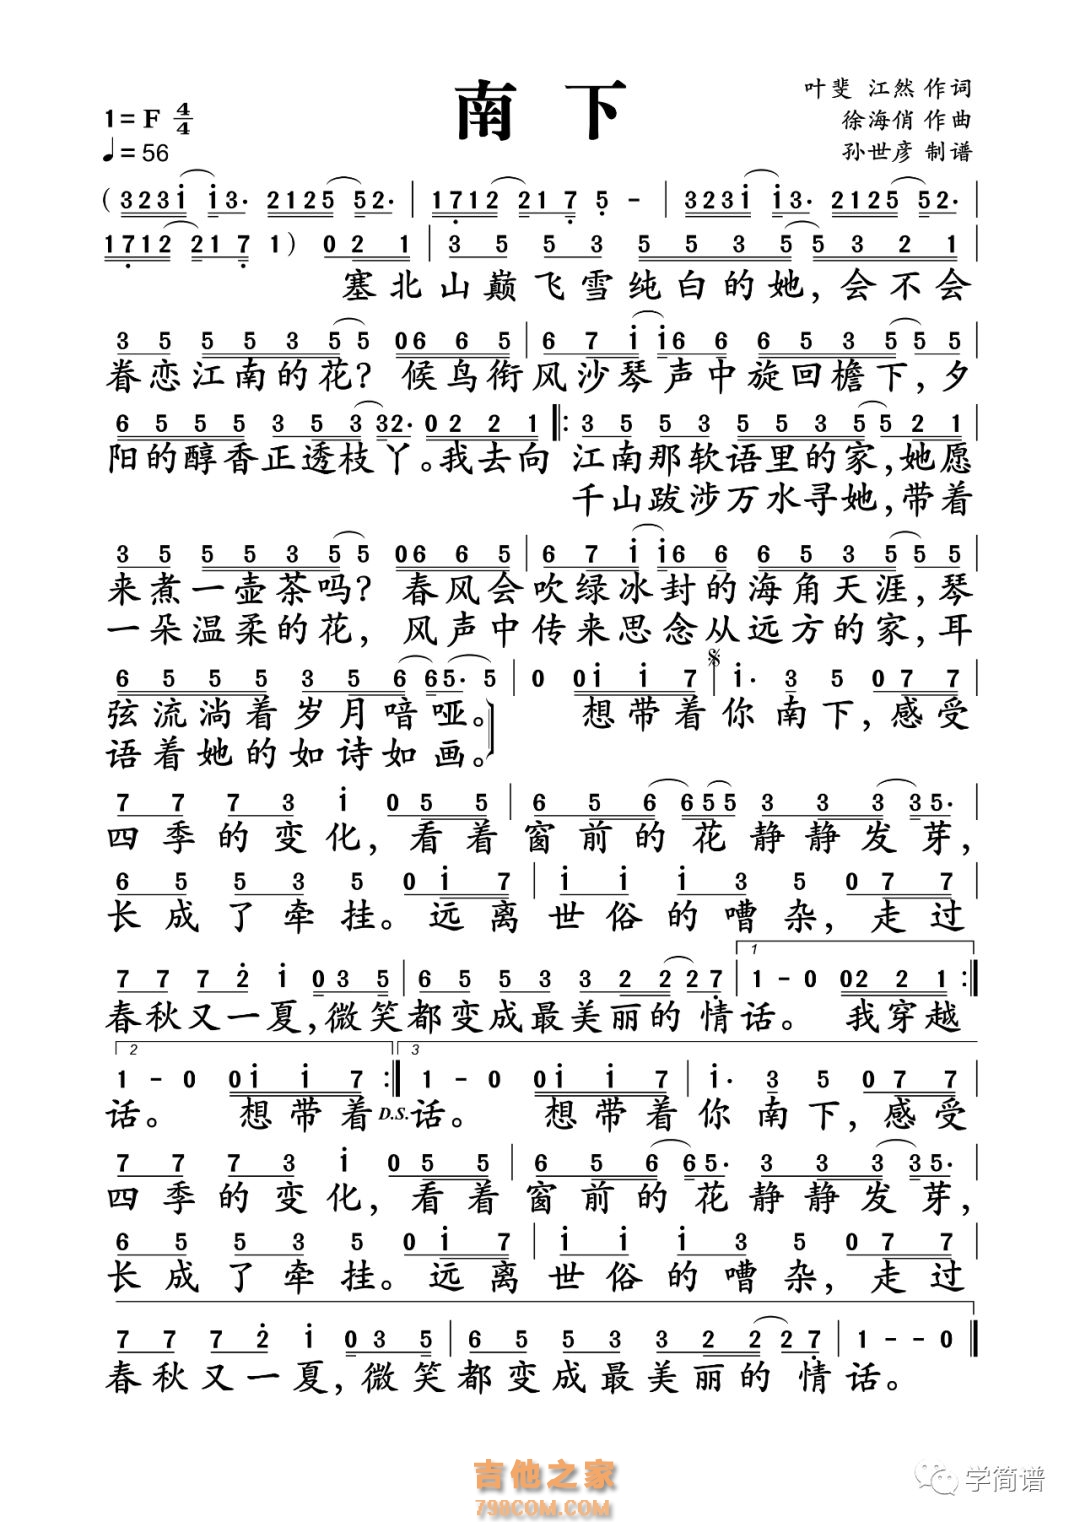 南 下
1= F 4/4
♩= 56
叶斐 江然 作词
徐海俏 作曲
孙世彦 制谱
( 3 2 3 i i 3. 2 1 2 5 5 2. | 1 7 1 2 2 1 7 5 - | 3 2 3 i i 3. 2 1 2 5 5 2. |
1 7 1 2 2 1 7 1 ) 0 2 1 | 3 5 5 3 5 5 3 5 5 3 2 1 |
塞北山巅飞雪纯白的她，会不会
3 5 5 5 3 5 5 0 6 6 5 | 6 7 i i 6 6 6 5 3 5 5 5 |
眷恋江南的花？候鸟衔风沙琴声中旋回檐下，夕
6 5 5 5 3 5 3 3 2. 0 2 2 1 ‖: 3 5 5 3 5 5 3 5 5 2 1 |
阳的醇香正透枝丫。我去向 江南那软语里的家，她愿
千山跋涉万水寻她，带着
3 5 5 5 3 5 5 0 6 6 5 | 6 7 i i 6 6 6 5 3 5 5 5 |
来煮一壶茶吗？春风会吹绿冰封的海角天涯，琴
一朵温柔的花，风声中传来思念从远方的家，耳
6 5 5 5 3 5 6 6 5. 5 | 0 0 i i 7 | i. 3 5 0 7 7 |
弦流淌着岁月喑哑。 想带着你南下，感受
语着她的如诗如画。
7 7 7 3 i 0 5 5 | 6 5 6 6 5 5 3 3 3 3 5. |
四季的变化，看着窗前的花静静发芽，
6 5 5 3 5 0 i 7 | i i i 3 5 0 7 7 |
长成了牵挂。远离世俗的嘈杂，走过
1
7 7 7 2 i 0 3 5 | 6 5 5 3 3 2 2 2 2 7 | 1 - 0 0 2 2 1 :‖
春秋又一夏，微笑都变成最美丽的情话。 我穿越
2 3
1 - 0 0 i i 7 :‖ 1 - 0 0 i i 7 | i. 3 5 0 7 7 |
话。 想带着 D.S. 话。 想带着你南下，感受
7 7 7 3 i 0 5 5 | 6 5 6 6 5. 3 3 3 3 5. |
四季的变化，看着窗前的花静静发芽，
6 5 5 3 5 0 i 7 | i i i 3 5 0 7 7 |
长成了牵挂。远离世俗的嘈杂，走过
7 7 7 2 i 0 3 5 | 6 5 5 3 3 2 2 2 2 7 | 1 - - 0 ‖
春秋又一夏，微笑都变成最美丽的情话。
吉他之家
798COM.COM
学简谱